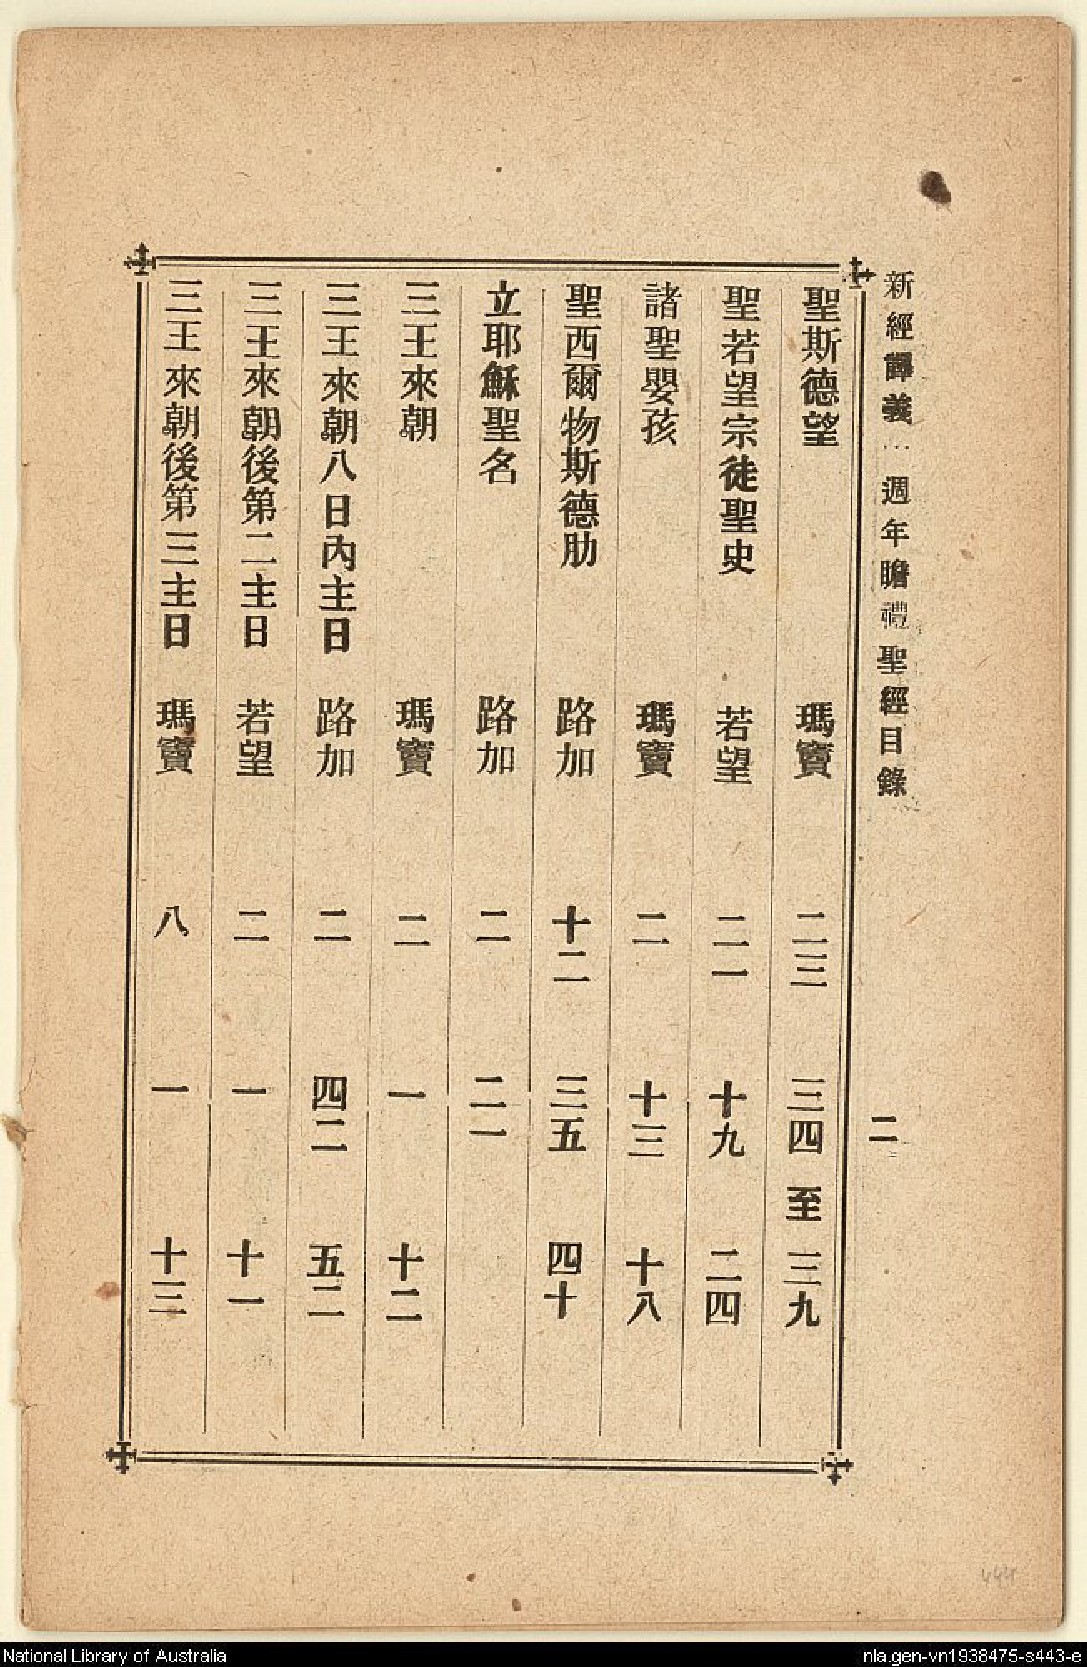 新經譯義…週年瞻禮聖經目錄 二
聖斯德望 瑪竇 二三 三四 至 三九
聖若望宗徒聖史 若望 二一 十九 二四
諸聖嬰孩 瑪竇 二 十三 十八
聖西爾物斯德肋 路加 十二 三五 四十
立耶穌聖名 路加 二 二一
三王來朝 瑪竇 二 一 十二
三王來朝八日內主日 路加 二 四二 五二
三王來朝後第二主日 若望 二 一 十一
三王來朝後第三主日 瑪竇 八 一 十三
444
National Library of Australia
nla.gen-vn1938475-s443-e